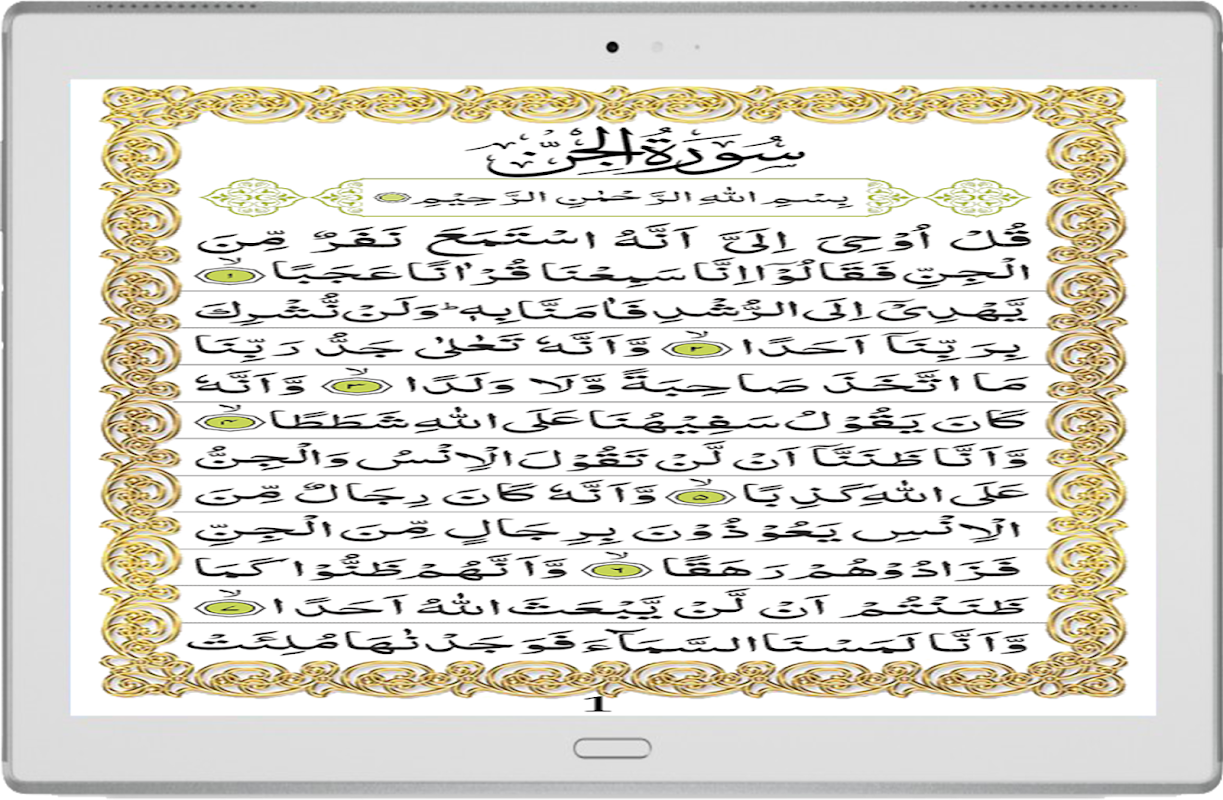 سُوْرَةُ الْجِنِّ
بِسْمِ اللهِ الرَّحْمٰنِ الرَّحِيْمِ
قُلْ اُوْحِیَ اِلَیَّ اَنَّهُ اسْتَمَعَ نَفَرٌ مِّنَ
الْجِنِّ فَقَالُوْۤا اِنَّا سَمِعْنَا قُرْاٰنًا عَجَبًا ۱
یَّهْدِیْۤ اِلَی الرُّشْدِ فَاٰمَنَّا بِهٖ ؕ وَلَنْ نُّشْرِكَ
بِرَبِّنَاۤ اَحَدًا ۙ ۲ وَّاَنَّهٗ تَعٰلٰی جَدُّ رَبِّنَا
مَا اتَّخَذَ صَاحِبَةً وَّلَا وَلَدًا ۙ ۳ وَّاَنَّهٗ
كَانَ یَقُوْلُ سَفِیْهُنَا عَلَی اللهِ شَطَطًا ۙ ۴
وَّاَنَّا ظَنَنَّاۤ اَنْ لَّنْ تَقُوْلَ الْاِنْسُ وَالْجِنُّ
عَلَی اللهِ كَذِبًا ۙ ۵ وَّاَنَّهٗ كَانَ رِجَالٌ مِّنَ
الْاِنْسِ یَعُوْذُوْنَ بِرِجَالٍ مِّنَ الْجِنِّ
فَزَادُوْهُمْ رَهَقًا ۙ ۶ وَّاَنَّهُمْ ظَنُّوْا كَمَا
ظَنَنْتُمْ اَنْ لَّنْ یَّبْعَثَ اللهُ اَحَدًا ۙ ۷
وَّاَنَّا لَمَسْنَا السَّمَآءَ فَوَجَدْنٰهَا مُلِئَتْ
1